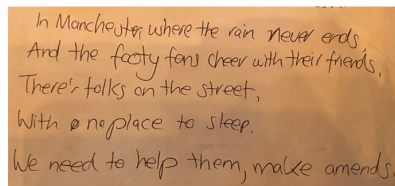 In Manchester, where the rain never ends,
And the footy fans cheer with their friends,
There's folks on the street,
With no place to sleep.
We need to help them, make amends.